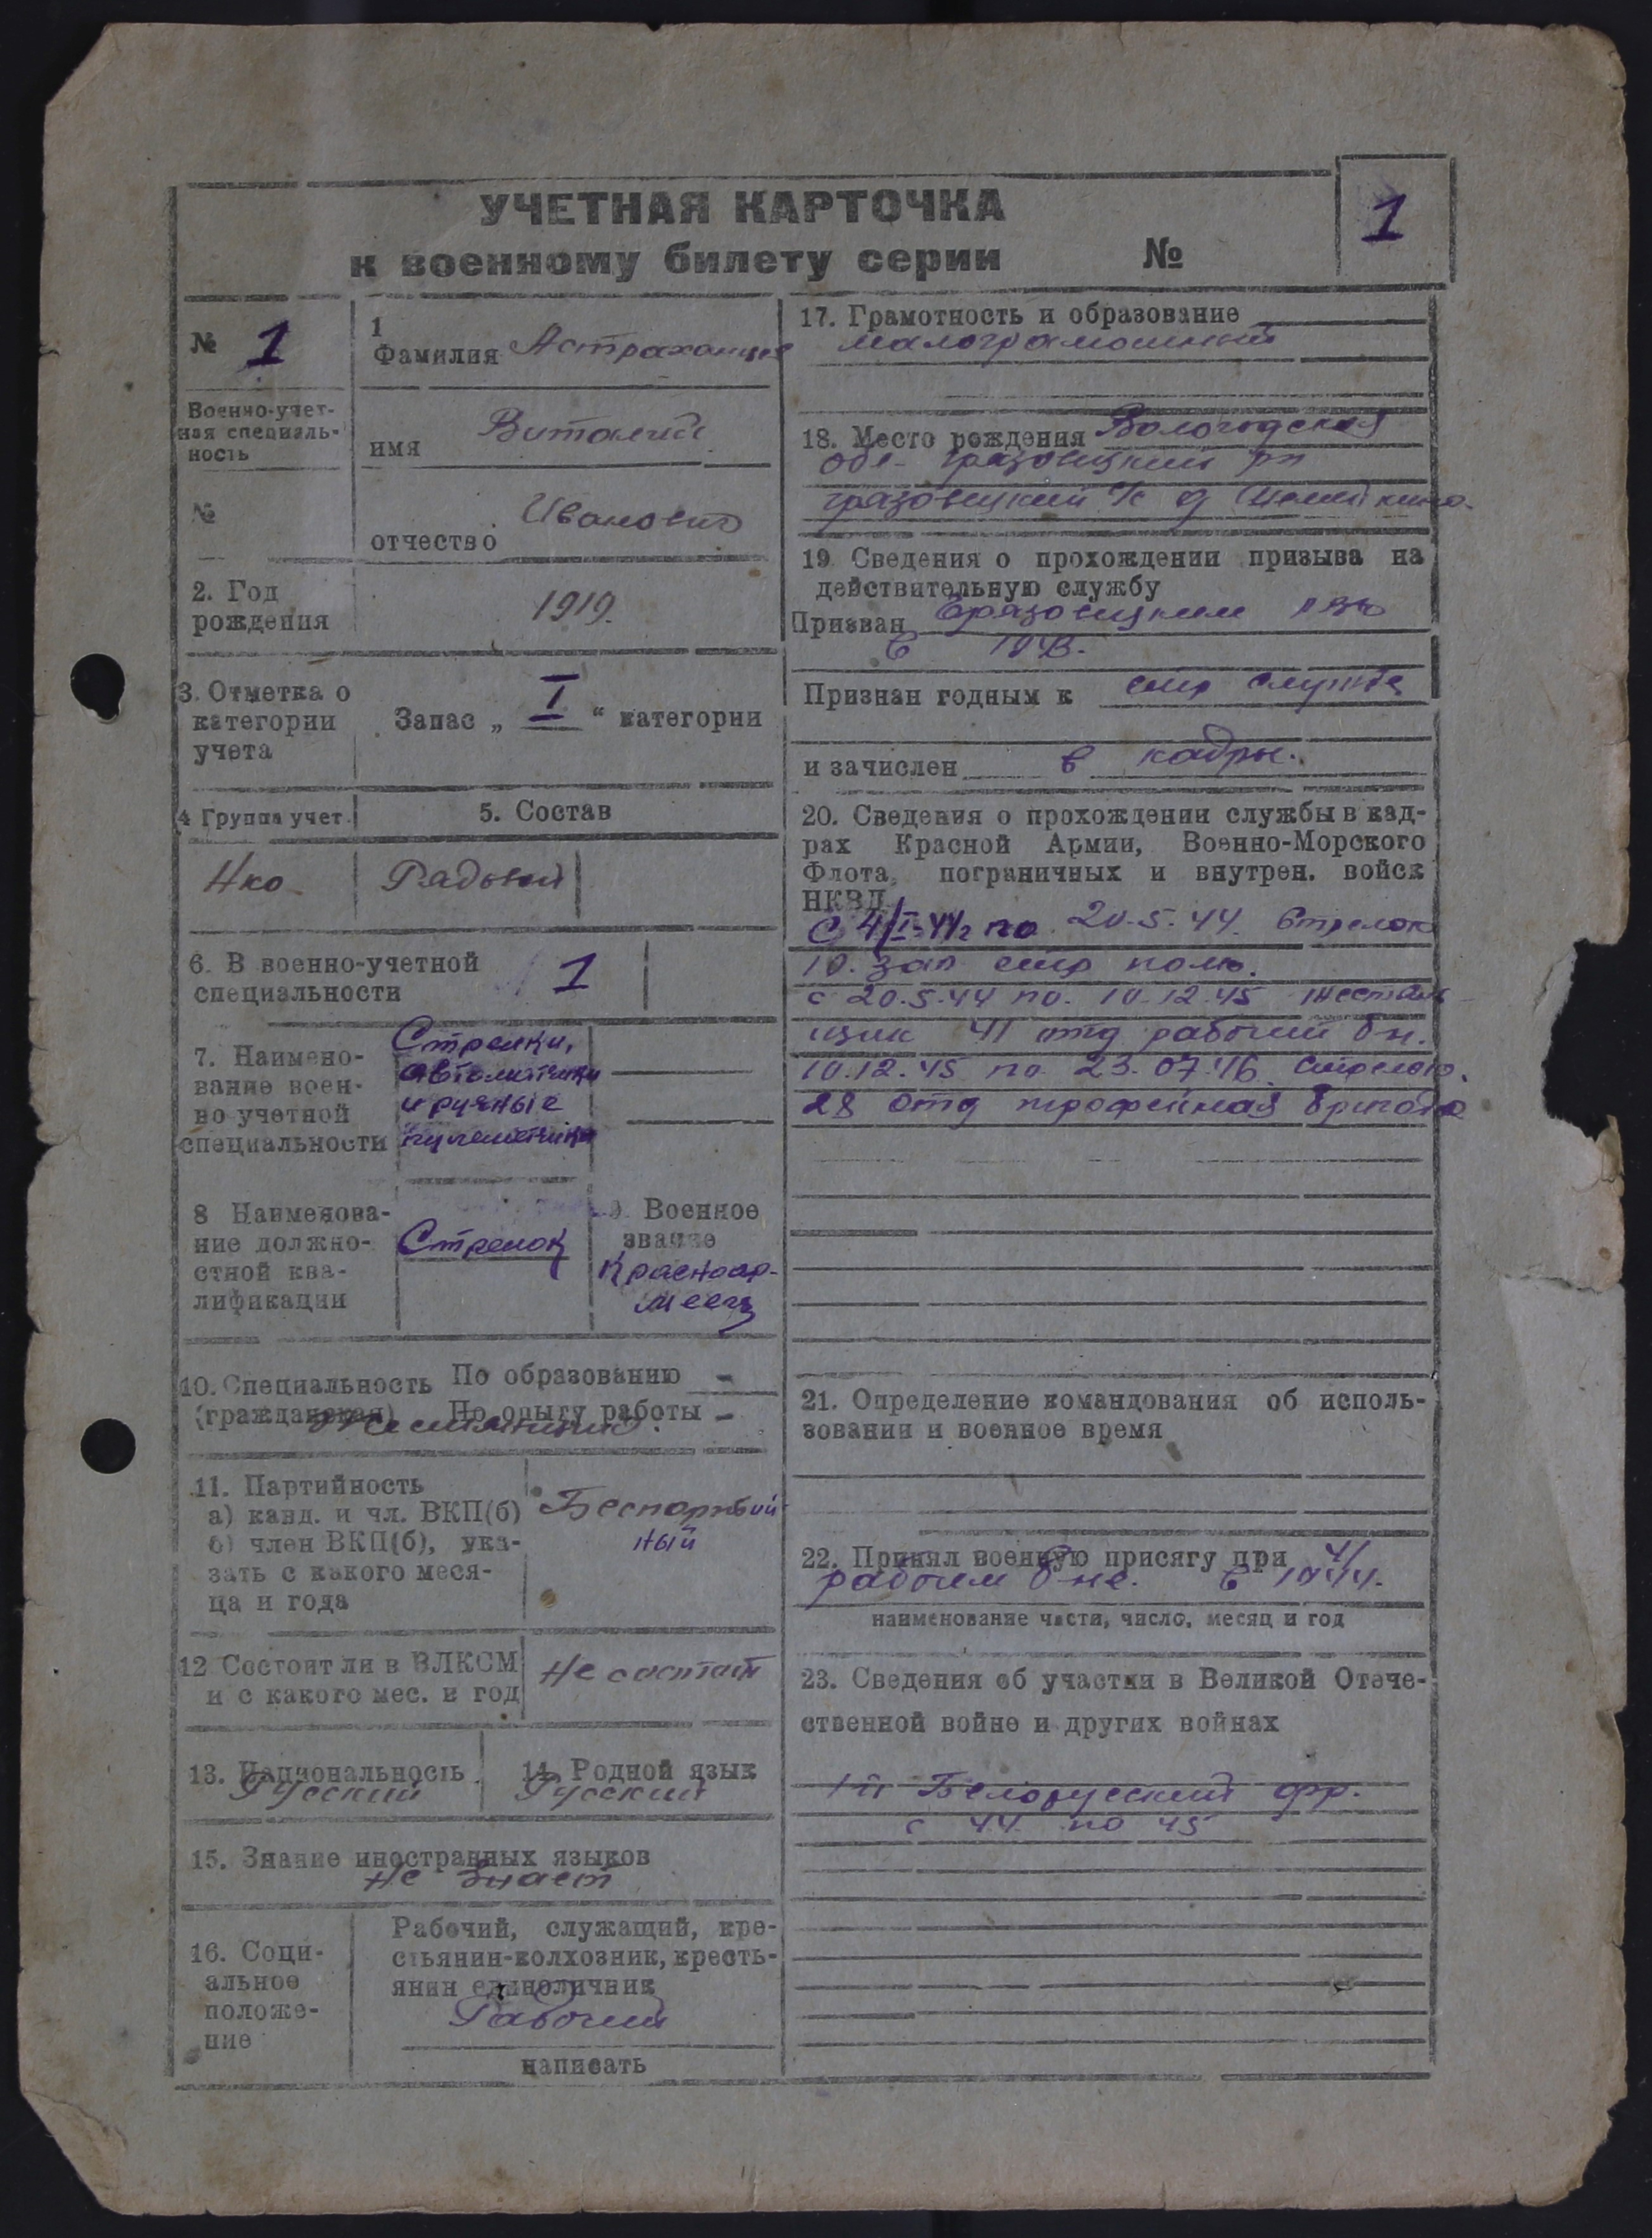 УЧЕТНАЯ КАРТОЧКА
к военному билету серии №
1
№ 1
1
Фамилия Астраханцев
Военно-учет-
ная специаль-
ность
имя Виталий
№
отчество Иванович
2. Год
рождения
1919.
3. Отметка о
категории
учета
Запас „ I “ категории
4 Группа учет.
5. Состав
Нко
Рядовой
6. В военно-учетной
специальности
1
7. Наимено-
вание воен-
но учетной
специальности
Стрелки,
автоматчики
и ручные
пулеметчики
8 Наименова-
ние должно-
стной ква-
лификации
Стрелок
9. Военное
звание
Красноар-
меец
10. Специальность
(гражданская)
По образованию -
По опыту работы -
Жестянщик.
11. Партийность
а) канд. и чл. ВКП(б)
б) член ВКП(б), ука-
зать с какого меся-
ца и года
Беспартий
ный
12 Состоит ли в ВЛКСМ
и с какого мес. и год
Не состоит
13. Национальность
Русский
14. Родной язык
Русский
15. Знание иностранных языков
Не знает
16. Соци-
альное
положе-
ние
Рабочий, служащий, кре-
стьянин-колхозник, кресть-
янин единоличник
Рабочий
написать
17. Грамотность и образование
малограмотный
18. Место рождения Вологодская
обл. Грязовецкий рн
грязовецкий с/с д
19 Сведения о прохождении призыва на
действительную службу
Призван Грязовецким РВК
в 1943.
Признан годным к стр службе
и зачислен в кадры.
20. Сведения о прохождении службы в кад-
рах Красной Армии, Военно-Морского
Флота, пограничных и внутрен. войск
НКВД
С 4/I-44г по 20.5.44. Стрелок
10. зап стр полк.
с 20.5.44 по. 10.12.45 жестян
щик 41 отд рабочий бн.
10.12.45 по 23.07.46. Стрелок.
28 отд трофейная бригада
21. Определение командования об исполь-
зовании и военное время
22. Принял военную присягу при 41
рабочем б-не. в 1944.
наименование части, число, месяц и год
23. Сведения об участии в Великой Отече-
ственной войне и других войнах
1й Белорусский фр.
с 44 по 45